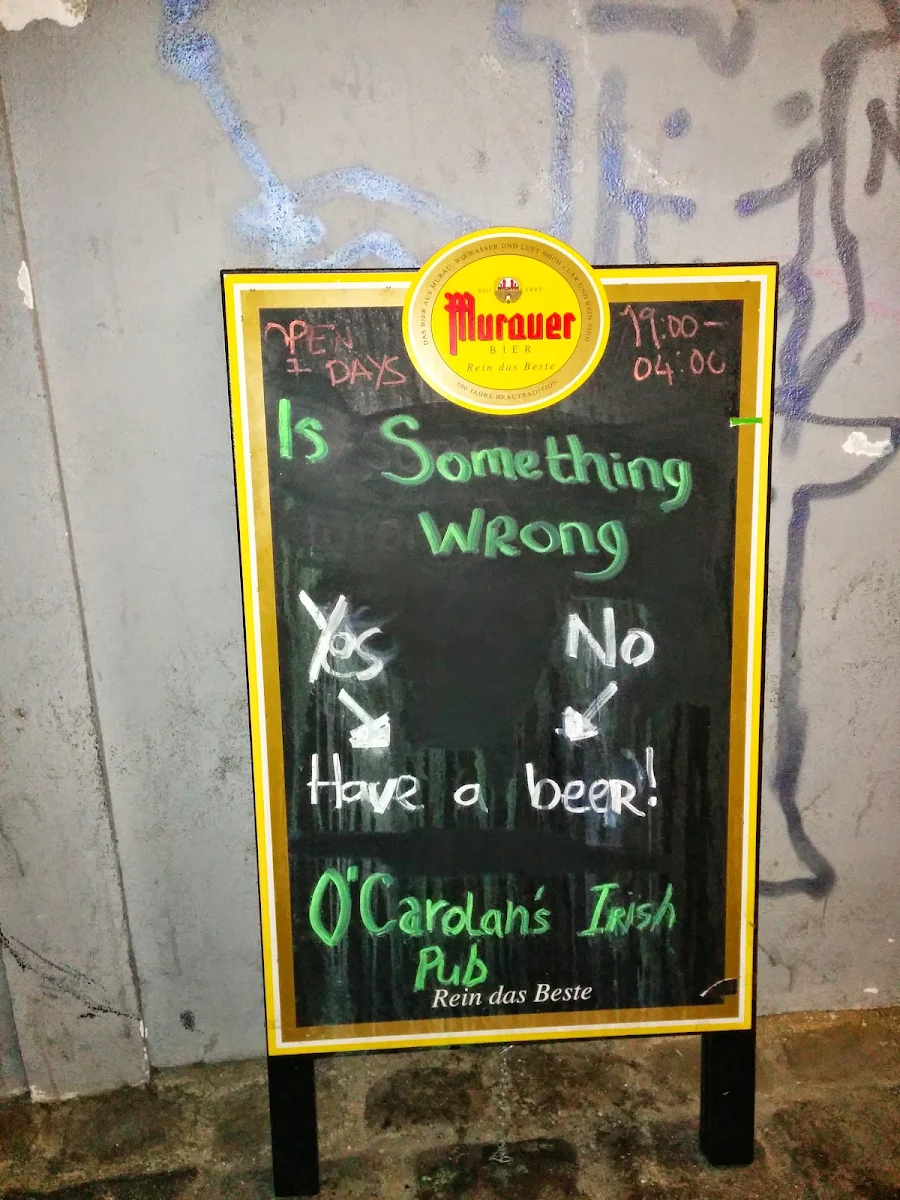 DAS BIER AUS MURAU, WO WASSER UND LUFT NOCH KLAR UND REIN SIND
Seit 1495
Murauer
BIER
Rein das Beste
500 JAHRE BRAUTRADITION
OPEN
DAYS
19:00-
04:00
Is Something
WRong
Yes No
Have a beeR!
O"CaroLan's IRish
Pub
Rein das Beste